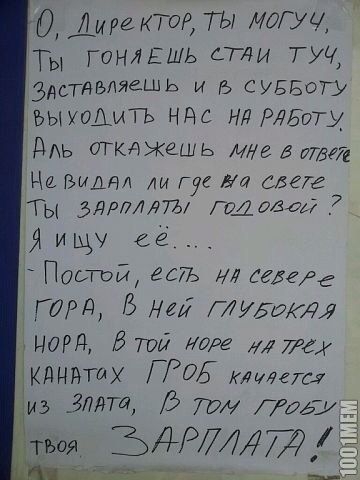 О, Директор, ты могуч,
Ты гоняешь стаи туч,
Заставляешь и в субботу
выходить нас на работу.
Аль откажешь мне в ответе
Не видал ли где на свете
Ты зарплаты годовой?
Я ищу её....
- Постой, есть на севере
гора, в ней глубокая
нора, в той норе на трёх
канатах ГРОБ качается
из злата, в том гробу
твоя ЗАРПЛАТА!
1001МЕМ